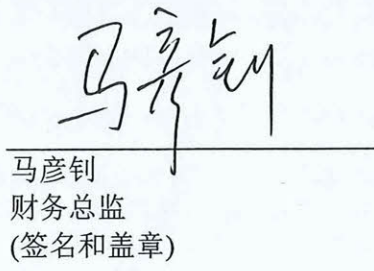 马彦钊
马彦钊
财务总监
(签名和盖章)